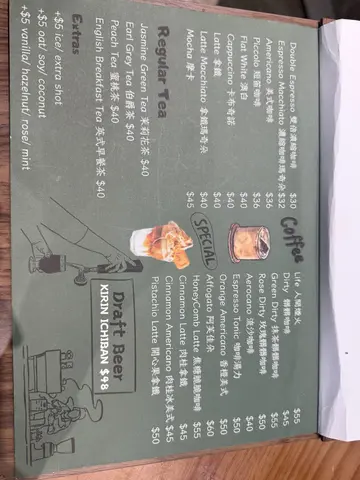 Coffee
Double Espresso 雙倍濃縮咖啡 $30
Espresso Macchiato 濃縮咖啡瑪奇朵 $32
Americano 美式咖啡 $36
Piccolo 短笛咖啡 $36
Flat White 澳白 $40
Cappuccino 卡布奇諾 $40
Latte 拿鐵 $40
Latte Macchiato 拿鐵瑪奇朵 $40
Mocha 摩卡 $45
SPECIAL
Life 人間煙火 $55
Dirty 髒髒咖啡 $45
Green Dirty 抹茶髒髒咖啡 $55
Rose Dirty 玫瑰髒髒咖啡 $50
Aerocano 流沙咖啡 $40
Espresso Tonic 咖啡湯力 $50
Orange Americano 香橙美式 $50
Affogato 阿芙佳朵 $60
HoneyComb Latte 焦糖脆脆咖啡 $55
Cinnamon Latte 肉桂拿鐵 $45
Cinnamon Americano 肉桂冰美式 $45
Pistachio Latte 開心果拿鐵 $50
Regular Tea
Jasmine Green Tea 茉莉花茶 $40
Earl Grey Tea 伯爵茶 $40
Peach Tea 蜜桃茶 $40
English Breakfast Tea 英式早餐茶 $40
Extras
+$5 ice/ extra shot
+$5 oat/ soy/ coconut
+$5 vanilla/ hazelnut/ rose/ mint
Draft Beer
KIRIN ICHIBAN $98